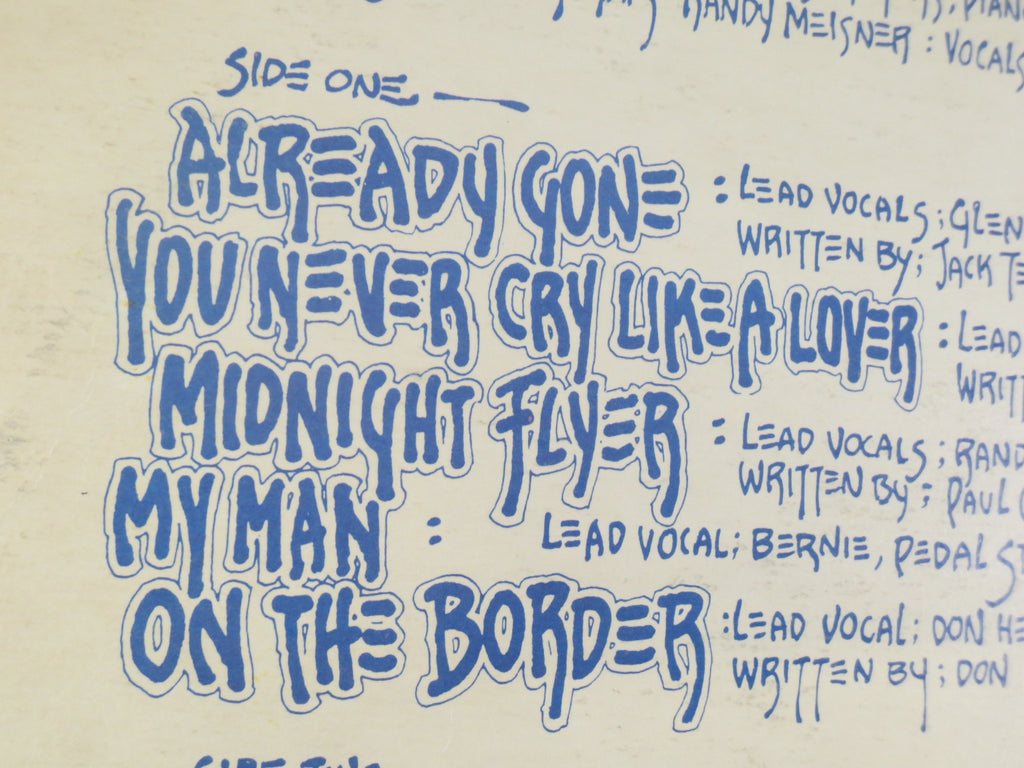 RANDY MEISNER : VOCALS
SIDE ONE
ALREADY GONE : LEAD VOCALS; GLEN
WRITTEN BY; JACK TE
YOU NEVER CRY LIKE A LOVER : LEAD
WRITT
MIDNIGHT FLYER : LEAD VOCALS; RAND
WRITTEN BY; PAUL
MY MAN : LEAD VOCAL; BERNIE, PEDAL ST
ON THE BORDER : LEAD VOCAL; DON HE
WRITTEN BY; DON
SIDE TWO